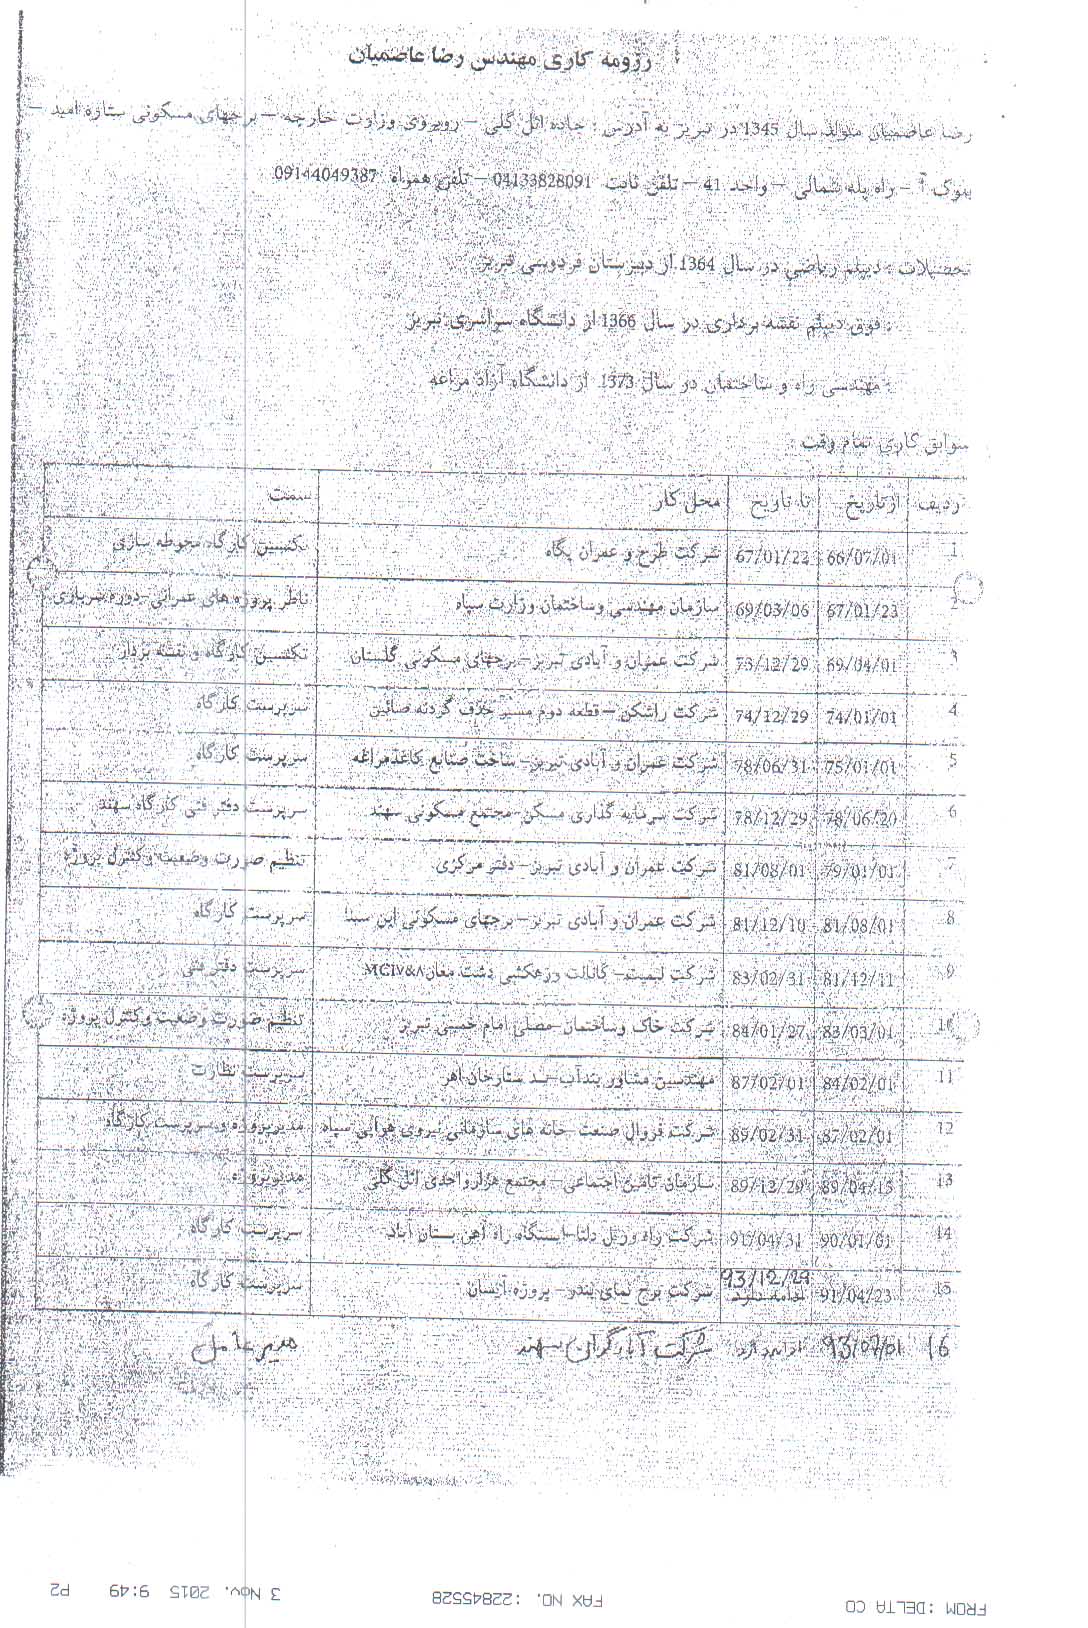 رزومه کاری مهندس رضا عاصمیان
رضا عاصمیان متولد سال 1345 در تبریز به آدرس : جاده ائل گلی – روبروی وزارت خارجه – برجهای مسکونی ستاره امید –
بلوک – راه پله شمالی – واحد 41 – تلفن ثابت 04133828091 – تلفن همراه 09144049387
تحصیلات : دیپلم ریاضی در سال 1364 از دبیرستان فردوسی تبریز
: فوق دیپلم نقشه برداری در سال 1366 از دانشگاه سراسری تبریز
: مهندسی راه و ساختمان در سال 1373 از دانشگاه آزاد مراغه
سوابق کاری تمام وقت :
ردیف از تاریخ تا تاریخ محل کار سمت
1 66/07/01 67/01/22 شرکت طرح و عمران پگاه تکنسین کارگاه محوطه سازی
2 67/01/23 69/03/06 سازمان مهندسی وساختمان وزارت سپاه ناظر پروژه های عمرانی-دوره سربازی
3 69/04/01 73/12/29 شرکت عمران و آبادی تبریز – برجهای مسکونی گلستان تکنسین کارگاه و نقشه بردار
4 74/01/01 74/12/29 شرکت راشکن – قطعه دوم مسیر حذف گردنه صائین سرپرست کارگاه
5 75/01/01 78/06/31 شرکت عمران و آبادی تبریز – ساخت صنایع کاغذ مراغه سرپرست کارگاه
6 78/06/20 78/12/29 شرکت سرمایه گذاری مسکن – مجتمع مسکونی سهند سرپرست دفتر فنی کارگاه سهند
7 79/01/01 81/08/01 شرکت عمران و آبادی تبریز – دفتر مرکزی تنظیم صورت وضعیت وکنترل پروژه
8 81/08/01 81/12/10 شرکت عمران و آبادی تبریز – برجهای مسکونی ابن سینا سرپرست کارگاه
9 81/12/11 83/02/31 شرکت – کانالت وزهکشی دشت مغان MCIV&A سرپرست دفتر فنی
10 83/03/01 84/01/27 شرکت خاک وساختمان – مصلی امام خمینی تبریز تنظیم صورت وضعیت وکنترل پروژه
11 84/02/01 87/02/01 مهندسین مشاور بندآب – سد ستارخان اهر سرپرست نظارت
12 87/02/01 89/02/31 شرکت فروال صنعت – خانه های سازمانی نیروی هوایی سپاه مدیر پروژه و سرپرست کارگاه
13 89/04/15 89/12/29 سازمان تامین اجتماعی – مجتمع هزار واحدی ائل گلی مدیر پروژه
14 90/01/01 91/04/31 شرکت راه وریل دلتا – ایستگاه راه آهن بستان آباد سرپرست کارگاه
15 91/04/23 93/12/29 ادامه دارد شرکت برج نمای بندر – پروژه سرپرست کارگاه
16 93/07/01 ادامه دارد شرکت آبادگران سهند مدیر عامل
FROM :DELTA CO FAX NO. :22845528 3 Nov. 2015 9:49 P2